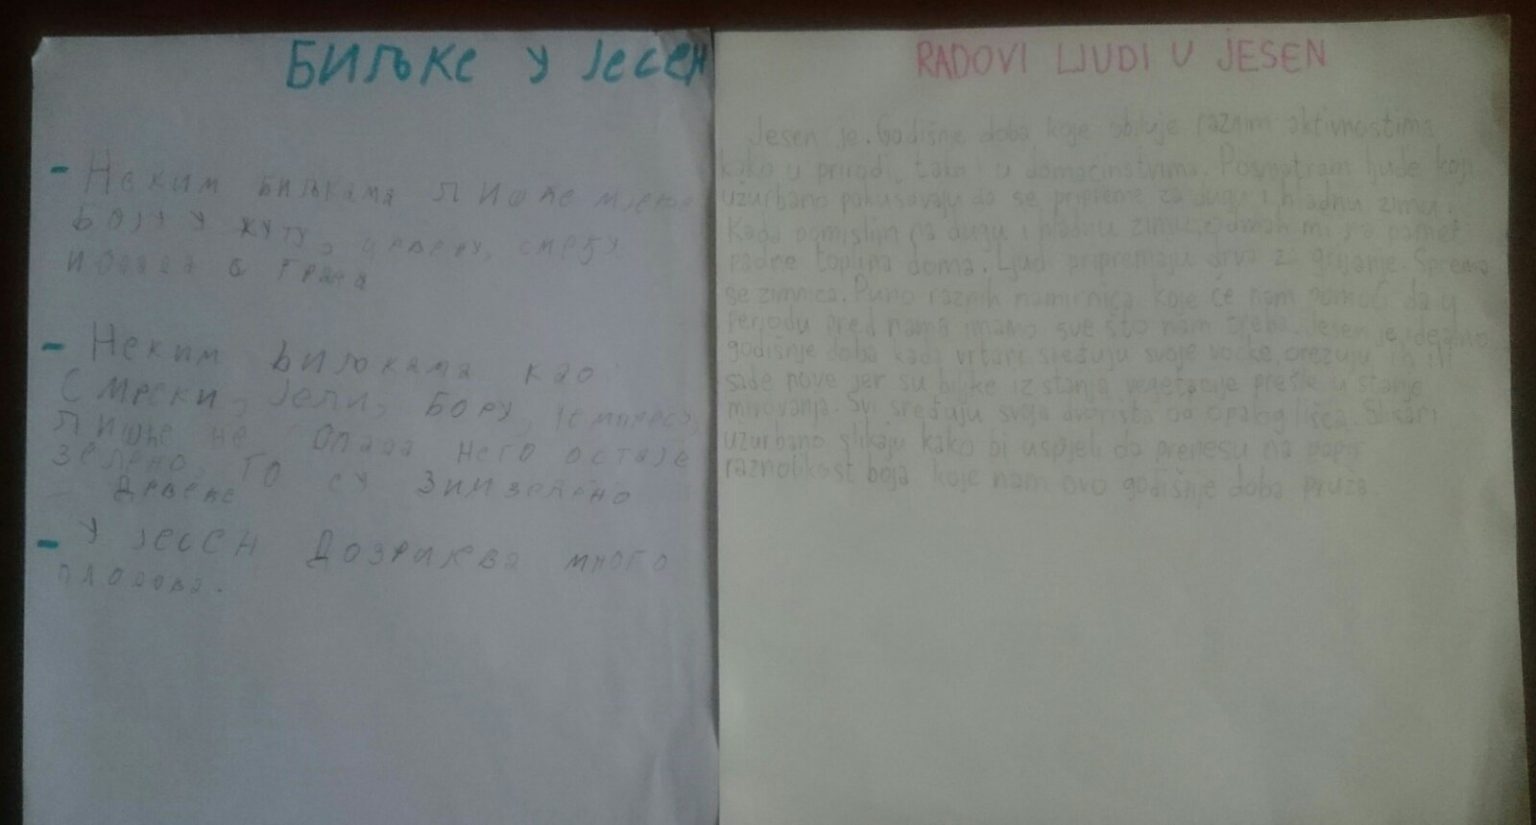 БИЉКЕ У ЈЕСЕН
- Неким биљкама лишће мјења
боју у жуту, црвену, смеђу
и опада с грана
- Неким биљкама као
смрски, јели, бору,
лишће не опада него остаје
зелено. То су зимзелено
дрвеће
- У јесен дозријева много
плодова.
RADOVI LJUDI U JESEN
Jesen je. Godišne doba koje obiluje raznim aktivnostima
kako u prirodi, tako i u domaćinstvima. Posmatram ljude koji
užurbano pokušavaju da se pripreme za dugu i hladnu zimu.
Kada pomislim na dugu i hladnu zimu, odmah mi na pamet
padne toplina doma. Ljudi pripremaju drva za grijanje. Sprema
se zimnica. Puno raznih namirnica koje će nam pomoći da u
periodu pred nama imamo sve što nam treba. Jesen je idealno
godišnje doba kada vrtari sređuju svoje voćke, orezuju ih ili
sade nove jer su biljke iz stanja vegetacije prešle u stanje
mirovanja. Svi sređuju svoja dvorišta od opalog lišća. Slikari
užurbano slikaju kako bi uspjeli da prenesu na papir
raznolikost boja koje nam ovo godišnje doba pruža.